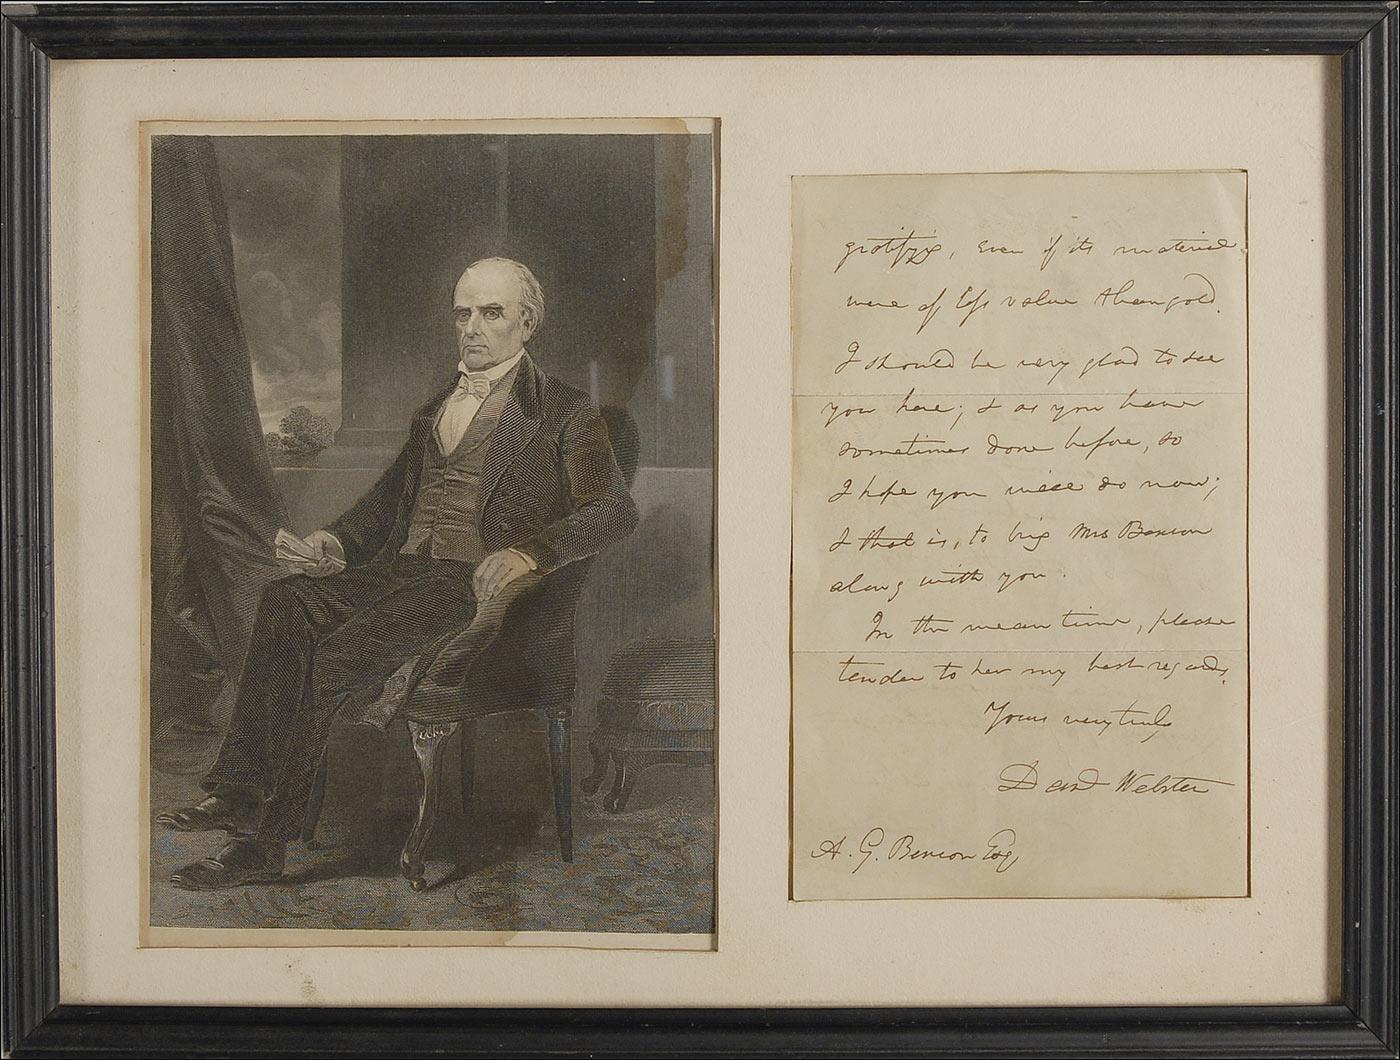 gratifying, even if its material
were of less value than gold.
I should be very glad to see
you here; & as you have
sometimes done before, so
I hope you will do now;
& that is, to bring Mrs Benson
along with you.
In the mean time, please
tender to her my best regards.
Yours very truly
Danl Webster
A. G. Benson Esq